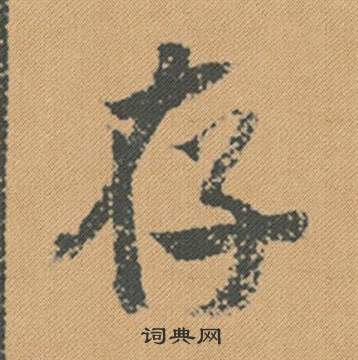 存
词典网